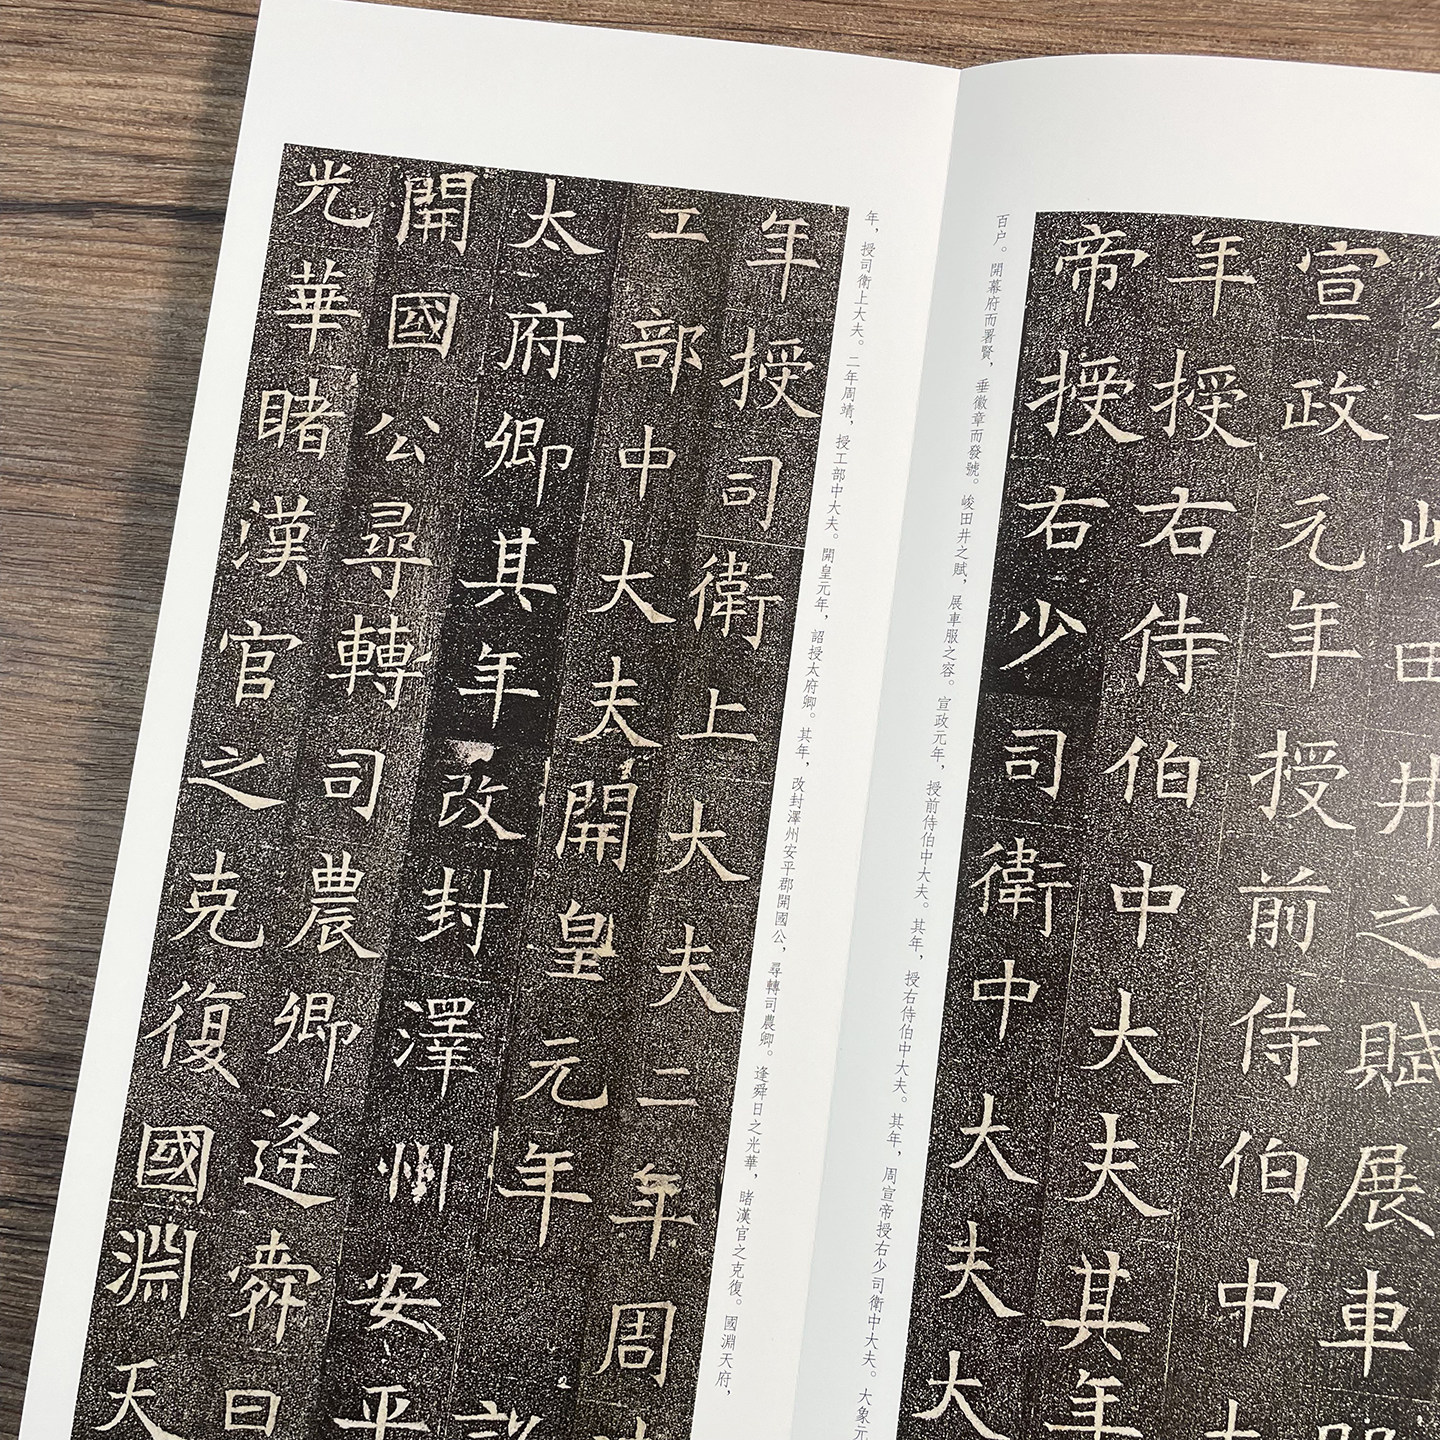 田井之賦展車
宣政元年授前侍伯中
年授右侍伯中大夫其年
帝授右少司衛中大夫大
百户。開幕府而署賢，垂徽章而發號。峻田井之賦，展車服之容。宣政元年，授前侍伯中大夫。其年，授右侍伯中大夫。其年，周宣帝授右少司衛中大夫。大象元
年，授司衛上大夫。二年周靖，授工部中大夫。開皇元年，詔授太府卿。其年，改封澤州安平郡開國公，尋轉司農卿。逢舜日之光華，睹漢官之克復。國淵天府，
年授司衛上大夫二年周
工部中大夫開皇元年
太府卿其年改封澤州安平
開國公尋轉司農卿逢舜日
光華睹漢官之克復國淵天